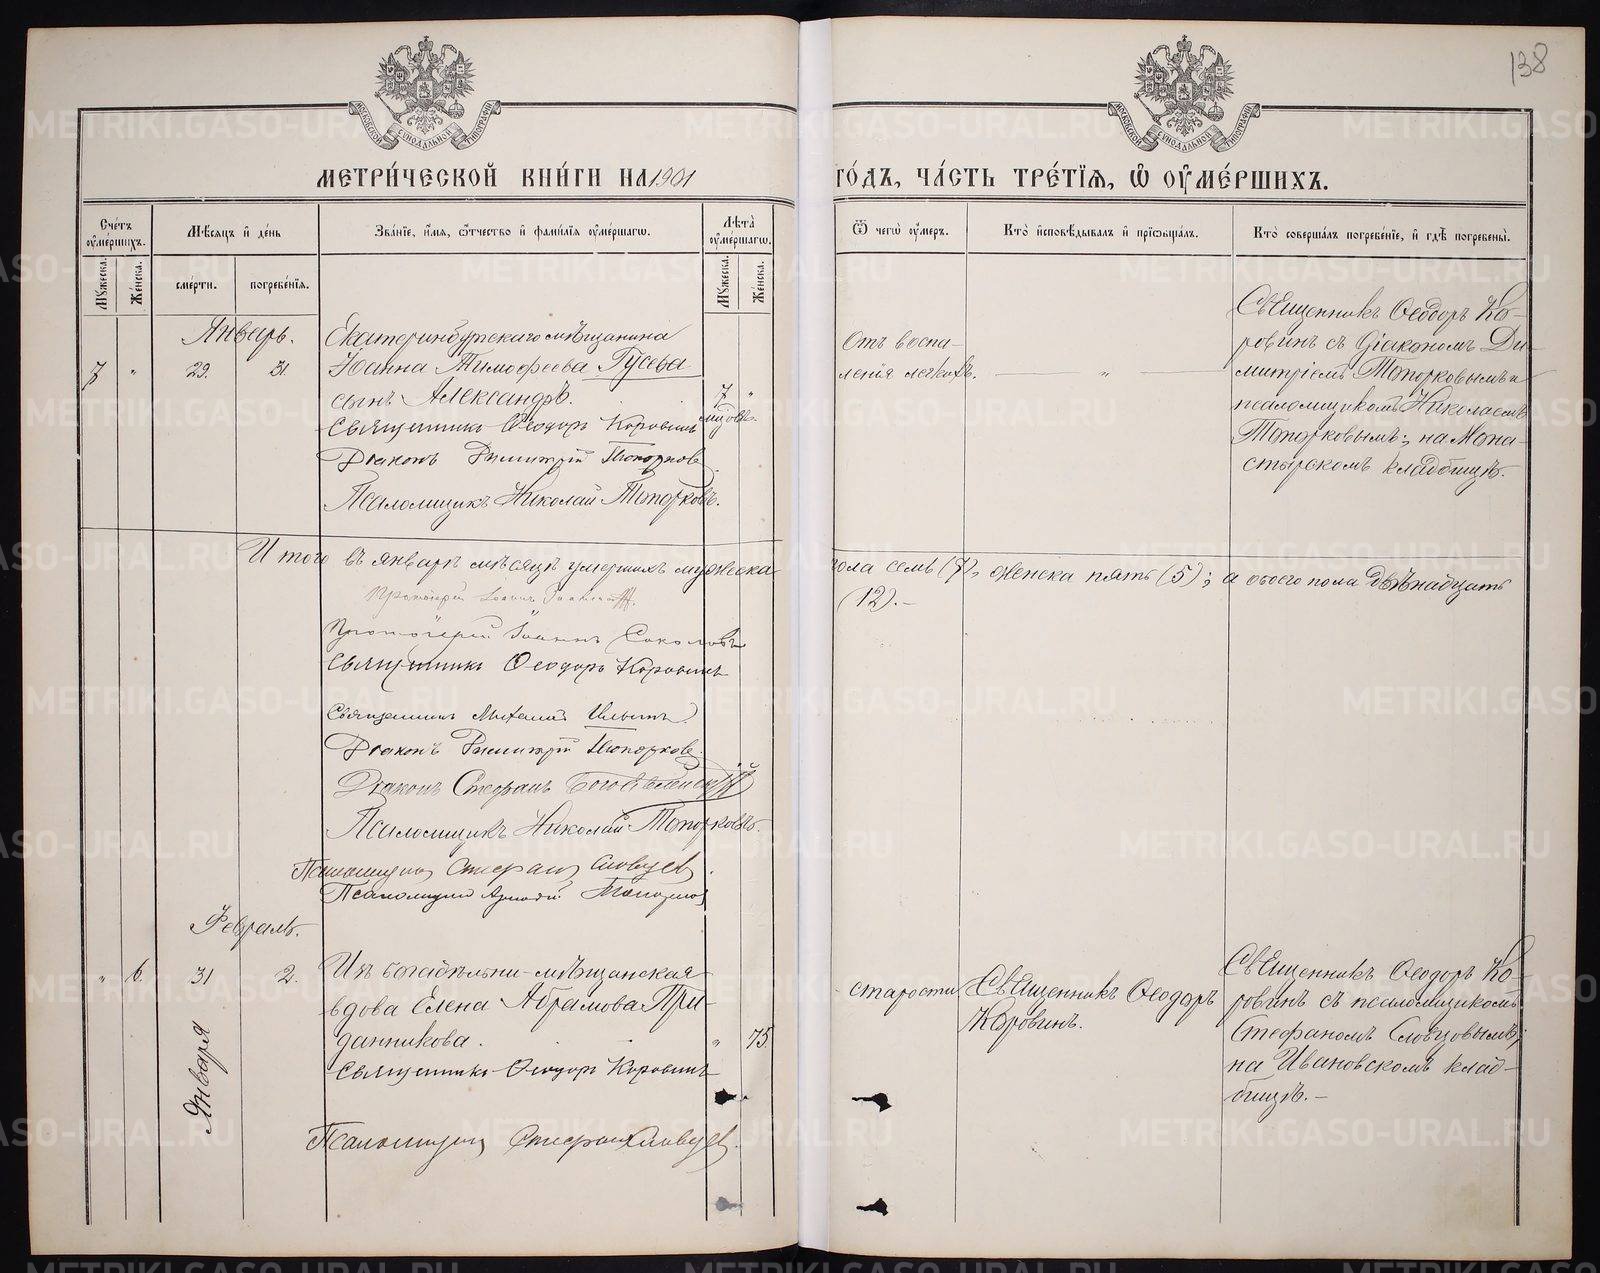 138
МЕТРИ́ЧЕСКОЙ КНИ́ГИ НА 1901
ГО́ДЪ, ЧА́СТЬ ТРЕ́ТЇѦ, Ѡ҆ ОУ҆МЕ́РШИХЪ.
Сче́тъ оу҆ме́ршихъ.
Мѣ́сяцъ и҆ де́нь
Зва́нїе, и҆́мѧ, ѻ҆́тчество и҆ фами́лїѧ оу҆ме́ршагѡ.
Лѣ́та оу҆ме́ршагѡ.
Ѿ чегѡ̀ оу҆́меръ.
Кто̀ и҆сповѣ́дывалъ и҆ прїѡбща́лъ.
Кто̀ соверша́лъ погребе́нїе, и҆ гдѣ̀ погребены̀.
Мꙋ́жеска.
Же́нска.
сме́рти.
погребе́нїѧ.
Мꙋ́жеска.
Же́нска.
Январь.
7 " 29. 31.
Екатеринбургскаго мѣщанина
Іоанна Тимофеева Гусева
сынъ Александръ.
7 "
мѣс.
Священникъ Ѳеодоръ Коровинъ
Діаконъ Димитрій Топорковъ
Псаломщикъ Николай Топорковъ.
Отъ воспа-
ленія легкихъ.
"
Священникъ Ѳеодоръ Ко-
ровинъ съ діакономъ Ди-
митріемъ Топорковымъ и
псаломщикомъ Николаемъ
Топорковымъ; на Мона-
стырскомъ кладбищѣ.
Итого въ январѣ мѣсяцѣ умершихъ мужеска
пола семь (7), женска пять (5); а обоего пола двѣнадцать
(12).-
Протоіерей Іоаннъ
Протоіерей Іоаннъ Соколовъ
Священникъ Ѳеодоръ Коровинъ
Священникъ Михаилъ Ильинъ
Діаконъ Димитрій Топорковъ.
Діаконъ Стефанъ Богоявленскій
Псаломщикъ Николай Топорковъ.
Псаломщикъ Стефанъ Словцовъ
Псаломщикъ Топорковъ
Февраль.
" 6. 31 2.
Января
Изъ богадѣльни - мѣщанская
вдова Елена Абрамова При-
данникова.
" 75
Священникъ Ѳеодоръ Коровинъ
Псаломщикъ Стефанъ Словцовъ.
старости
Священникъ Ѳеодоръ
Коровинъ.
Священникъ Ѳеодоръ Ко-
ровинъ съ псаломщикомъ
Стефаномъ Словцовымъ;
на Ивановскомъ клад-
бищѣ.-
METRIKI.GASO-URAL.RU